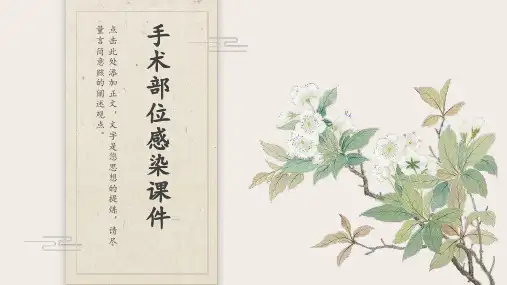 手术部位感染课件
点击此处添加正文，文字是您思想的提炼，请尽
量言简意赅的阐述观点。